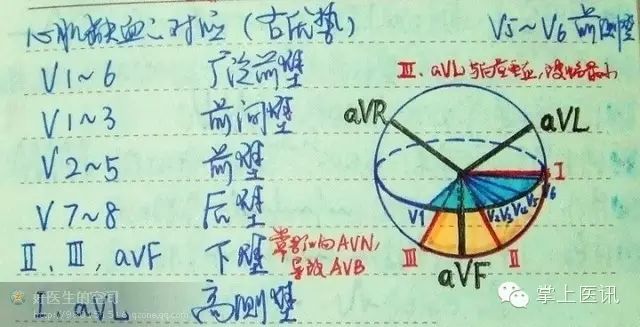 心肌缺血 对应(右优势)
V5~V6 前侧壁
V1~6 广泛前壁
V1~3 前间壁
V2~5 前壁
V7~8 后壁
II、III、aVF 下壁
常影响AVN,
导致AVB
I、aVL 高侧壁
III、aVL
aVR
aVL
I
V1
V2 V3 V4 V5 V6
III
aVF
II
好医生的空间
掌上医讯